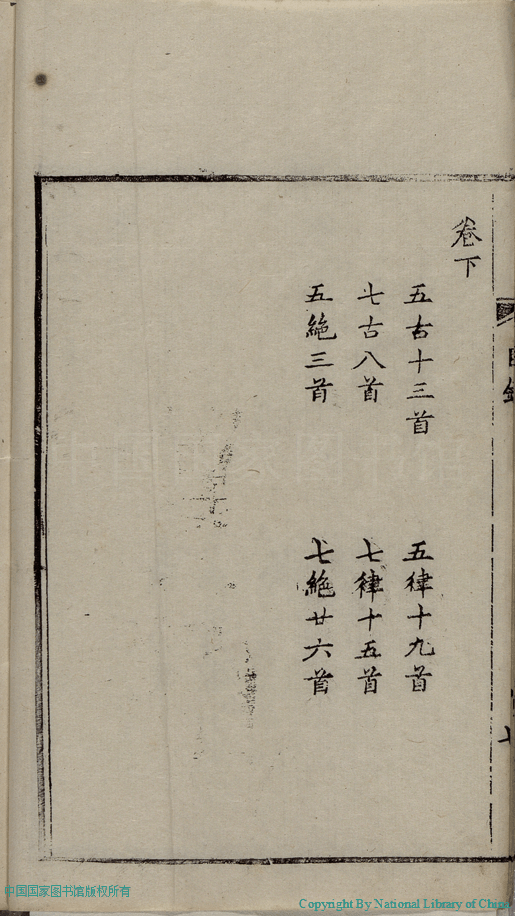 卷下
五古十三首 五律十九首
七古八首 七律十五首
五絕三首 七絕廿六首
中国国家图书馆版权所有
Copyright By National Library of China